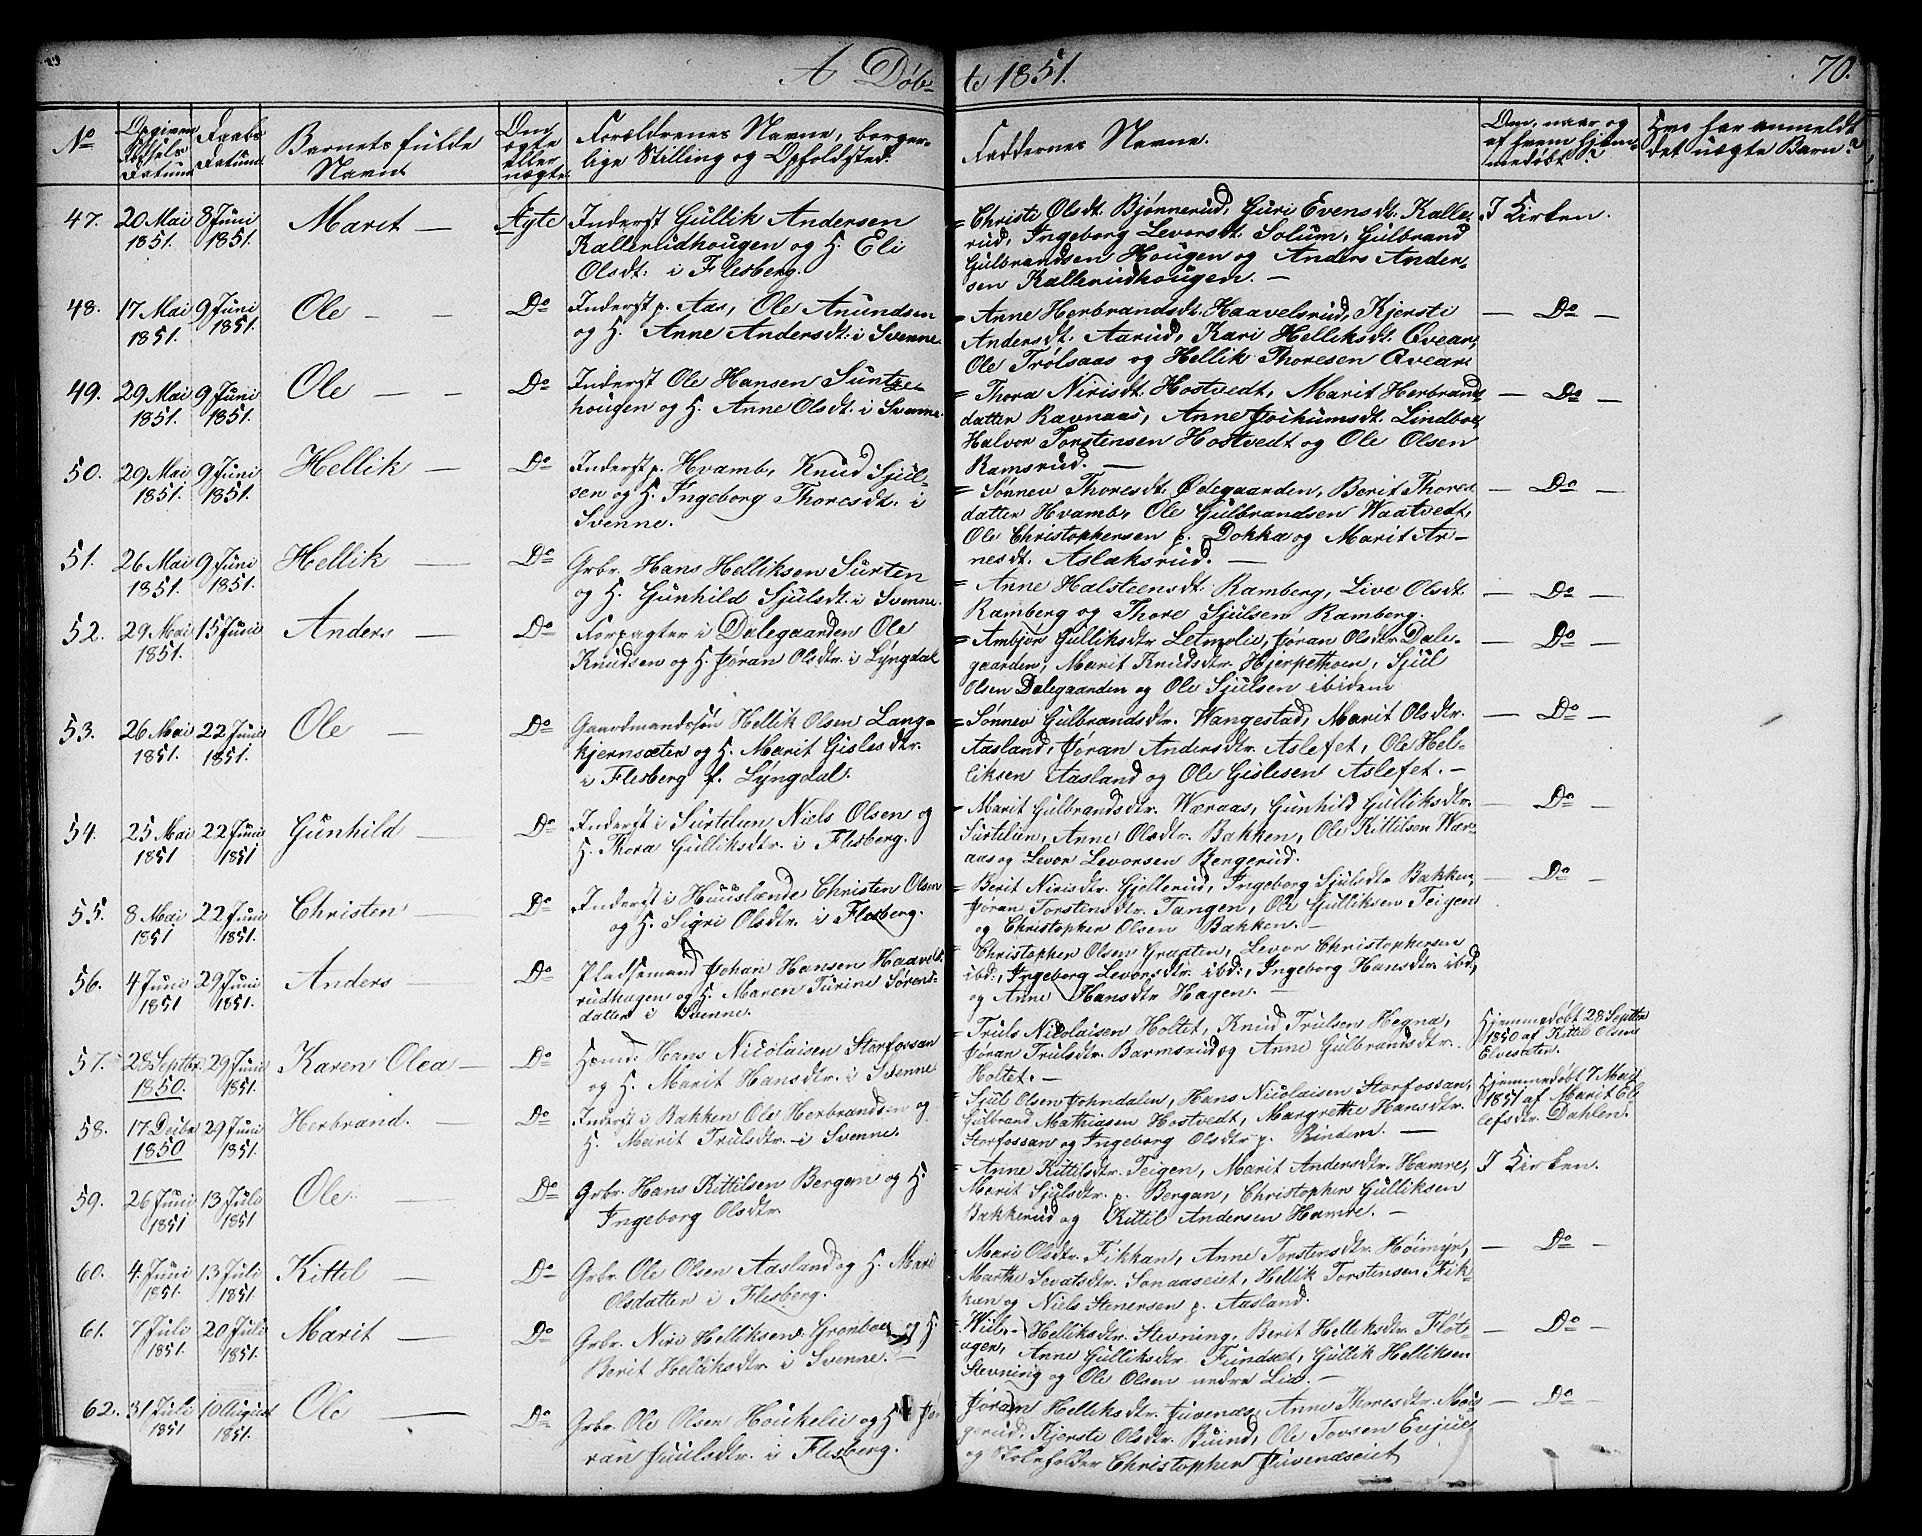 A Døb-
te 1851.
70.
No
Opgiven Fødsels Datum
Daabs Datum
Barnets fulde Navn
Om ægte eller uægte.
Forældrenes Navne, borger-
lige Stilling og Opholdsted.
Faddernes Navne.
Om, naar og af hvem hjem-
medøbt?
Hvo har anmeldt
det uægte Barn?
47. 20 Mai 1851. 8 Juni 1851. Marit — Ægte
Inderst Gullik Andersen
Kallerudhougen og H. Eli
Olsdt. i Flesberg.
= Christi Olsdt. Bjønnerud, Guri Evensdt. Kalle-
rud, Ingeborg Levorsdt. Solum, Gulbrand
Gulbrandsen Hougen og Anders Ander-
sen Kallerudhougen. —
I Kirken.
48. 17 Mai 1851. 9 Juni 1851. Ole — — Do
Inderst p. Aas, Ole Anundsen
og H. Anne Andersdt. i Svenne.
= Anne Herbrandsdt. Haavelsrud, Kjersti
Andersdt. Aarud, Kari Helliksdt. Qvear,
Ole Trolsaas og Hellik Thoresen Qvear.
— Do —
49. 29 Mai 1851. 9 Juni 1851. Ole — — Do
Inderst Ole Hansen Suntze-
hougen og H. Anne Olsdt. i Svenne.
= Thora Nirisdt. Hostvedt, Marit Herbrands
datter Ravnaas, Anne Jochumsdt. Lindboe,
Halvor Torstensen Hostvedt og Ole Olsen
Ramsrud. —
— Do —
50. 29 Mai 1851. 9 Juni 1851. Hellik — Do
Inderst p. Hvamb, Knud Sjul-
sen og H. Ingeborg Thoresdt. i
Svenne.
= Sønnev Thoresdt. Ødegaarden, Berit Thores
datter Hvamb, Ole Gulbrandsen Waatvedt,
Ole Christophersen p. Dokka og Marit Ar-
nesdt. Aslaksrud. —
— Do —
51. 26 Mai 1851. 9 Juni 1851. Hellik — Do
Grbr. Hans Helliksen Surten
og H. Gunhild Sjulsdt. i Svenne.
= Anne Halsteensdt. Ramberg, Live Olsdt.
Ramberg og Thore Sjulsen Ramberg.
— Do —
52. 29 Mai 1851. 15 Juni Anders — Do
Forpagter i Dalegaarden Ole
Knudsen og H. Jøran Olsdtr. i Lyngdal
= Ambjør Gulliksdtr. Letmolie, Jøran Olsdtr. Dale-
gaarden, Marit Knudsdtr. Hjerpethoen, Sjul
Olsen Dalegaarden og Ole Sjulsen ibidem
— Do —
53. 26 Mai 1851. 22 Juni 1851. Ole — Do
Gaardmandssøn Hellik Olsen Lang-
kjernsæter og H. Marit Gislesdtr.
i Flesberg f. Lyngdal.
= Sønnev Gulbrandsdtr. Wangestad, Marit Olsdtr.
Aasland, Jøran Andersdtr. Aslefet, Ole Hel-
liksen Aasland og Ole Gislesen Aslefet. —
— Do —
54. 25 Mai 1851 22 Juni 1851 Gunhild — Do
Inderst i Surtelien, Niels Olsen og
H. Thora Gulliksdtr. i Flesberg.
= Marit Gulbrandsdtr. Wæraas, Gunhild Gulliksdtr.
Surtelien, Anne Olsdtr. Bakken, Ole Kittilsen Wær-
aas og Levor Levorsen Bergerud.
— Do —
55. 8 Mai 1851 22 Juni 1851. Christen — Do
Inderst i Huuslænde Christen Olsen
og H. Sigri Olsdtr. i Flesberg.
= Berit Nirisdtr. Gjellerud, Ingeborg Sjulsdtr Bakken,
Jøran Torstensdtr. Tangen, Ole Gulliksen Teigen
og Christopher Olsen Bakken. —
— Do —
56. 4 Juni 1851 29 Juni 1851. Anders — Do
Pladsemand Johan Hansen Haavels-
rudhagen og H. Maren Turine Søren-
datter i Svenne.
= Christopher Olsen Graaten, Levor Christophersen
ibd:, Ingeborg Levorsdtr. ibd:, Ingeborg Hansdtr. ibd,
og Anne Hansdtr Hagen. —
57. 28 Septbr. 1850. 29 Juni 1851. Karen Olea — Do
Hans Nicolaisen Storfossan
og H. Marit Hansdtr. i Svenne
= Truls Nicolaisen Holtet, Knud Trulsen Hegna,
Jøran Trulsdtr. Barmsrud og Anne Gulbrandsdtr.
Holtet. —
Hjemmedøbt 28 Septbr
1850 af Kittil Olsen
Elvesæter.
58. 17 Decbr 1850 29 Juni 1851. Herbrand. — Do
Inderst i Bakken Ole Herbrandsen og
H. Marit Trulsdtr. i Svenne.
Sjul Olsen Johndalen, Hans Nicolaisen Storfossan,
Gulbrand Mathiasen Hostvedt, Margrethe Hansdtr.
Storfossan og Ingeborg Olsdtr p. Bindem. —
Hjemmedøbt 7 Marit
1851 af Marit El-
lefsdtr. Dahlen.
59. 26 Juni 1851 13 Juli 1851 Ole — Do
Grbr. Hans Kittilsen Bergan og H.
Ingeborg Olsdtr.
= Anne Kittilsdtr. Teigen, Marit Andersdtr. Hamre,
Marit Sjulsdtr. p. Bergan, Christopher Gulliksen
Bakkerud og Kittil Andersen Hamre. —
I Kirken.
60. 4. Juni 1851. 13 Juli 1851. Kittil — Do
Grbr. Ole Olsen Aasland og H. Mari
Olsdatter i Flesberg.
= Mari Olsdtr. Fikkan, Anne Torstensdtr. Høimyr,
Marthe Sevatsdtr. Sonaaseiet, Hellik Torstensen Fik-
kan og Niels Stenersen p. Aasland.
— Do —
61. 7 Juli 1851. 20 Juli 1851. Marit — Do
Grbr. Niri Helliksen Gronboe og H
Berit Helliksdtr. i Svenne. —
= Helliksdtr. Stevning, Berit Helliksdtr. Fløt-
agen, Anne Gulliksdtr. Fundsæt, Gullik Helliksen
Stevning og Ole Olsen nedre Lia.
— Do —
62. 31 Juli 1851 10 August 1851. Ole — Do
Grbr. Ole Olsen Houkelie og H. Jø-
ran Juulsdtr. i Flesberg.
Jøran Helliksdtr. Juvenæs, Anne Thoresdtr. Møi-
gerud, Kjersti Olsdtr. Buind, Ole Tovsen Evjue
og Skoleholder Christopher Juvenæseiet
— Do —